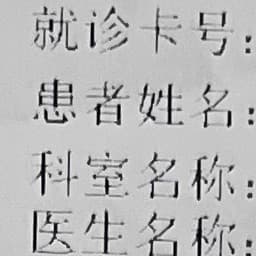 就诊卡号:
患者姓名:
科室名称:
医生名称: